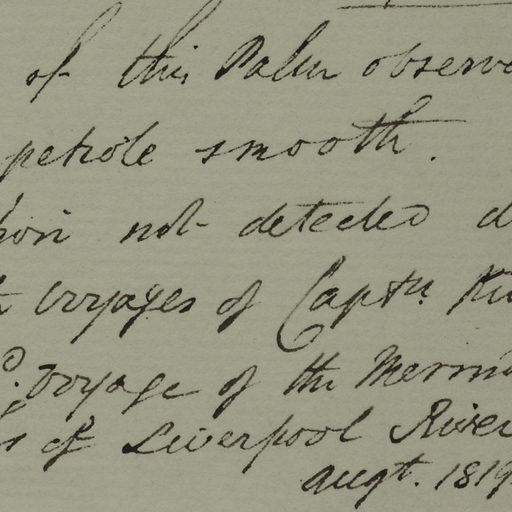 of this Palm observe
petiole smooth.
not detected d
voyages of Captn. Ki
voyage of the Merm
of Liverpool River
augt. 1819